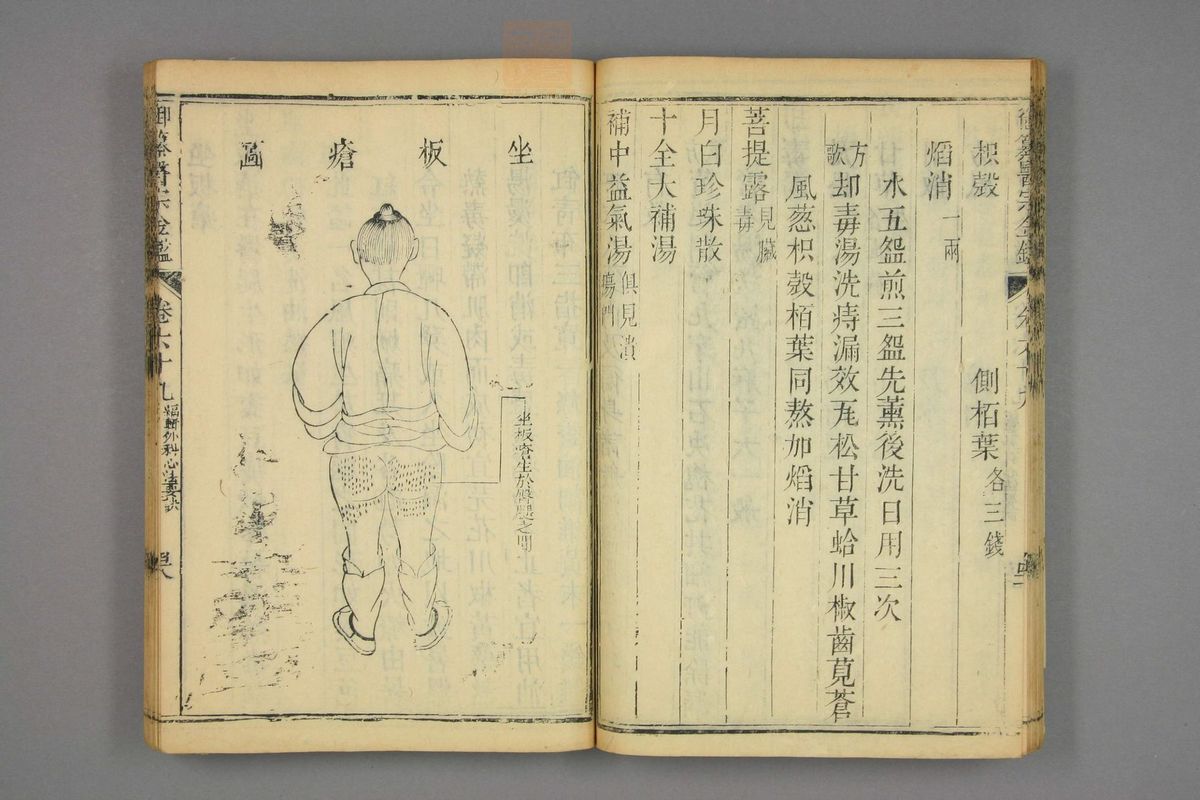 枳殼　側栢葉各三錢
焰消一兩
水五盌煎三盌先薰後洗日用三次
方歌　却毒湯洗痔漏效瓦松甘草蛤川椒齒莧蒼
風葱枳殼栢葉同熬加焰消
菩提露見臟毒
月白珍珠散
十全大補湯
補中益氣湯俱見潰瘍門
坐板瘡圖
坐板瘡生於臀腿之間
卷六十九　編輯外科心法要訣